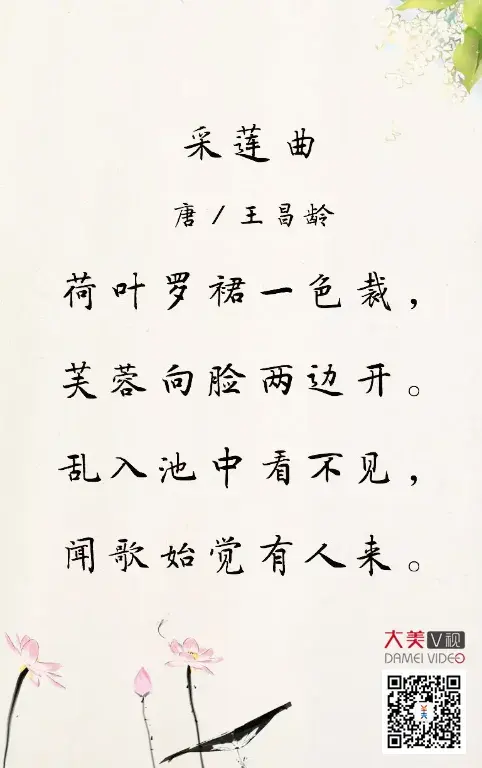 采莲曲
唐/王昌龄
荷叶罗裙一色裁，
芙蓉向脸两边开。
乱入池中看不见，
闻歌始觉有人来。
大美V视
DAMEI VIDEO